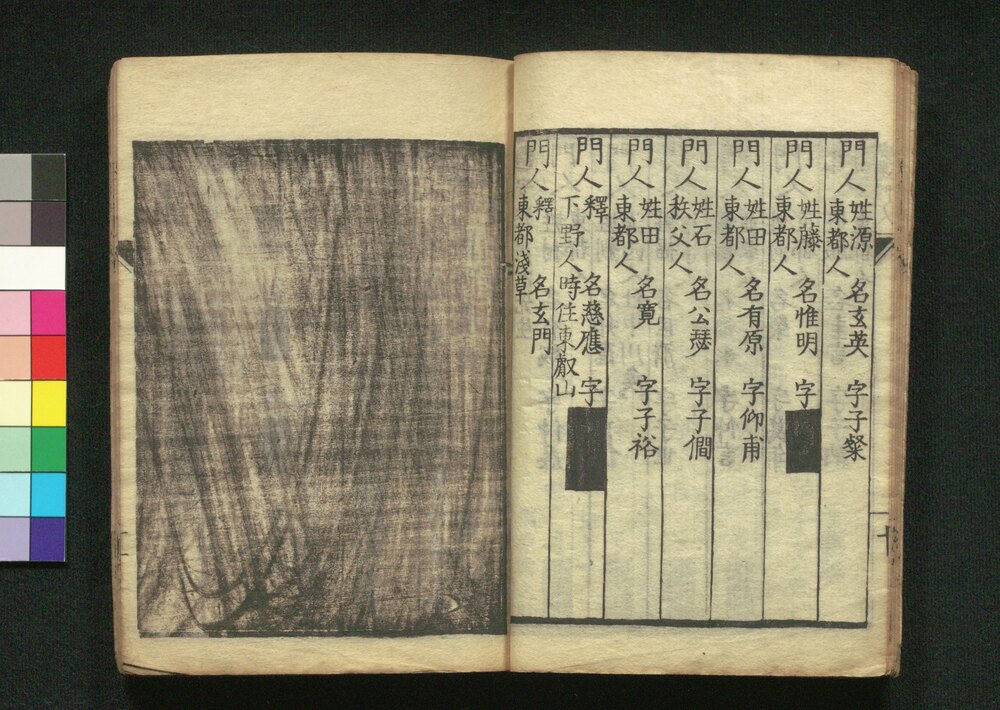 門人姓源 東都人 名玄英 字子粲
門人姓藤 東都人 名惟明 字
門人姓田 東都人 名有原 字仰甫
門人姓石 秩父人 名公瑟 字子僩
門人姓田 東都人 名寛 字子裕
門人釋 下野人時住東叡山 名慈應 字
門人釋 東都淺草 名玄門